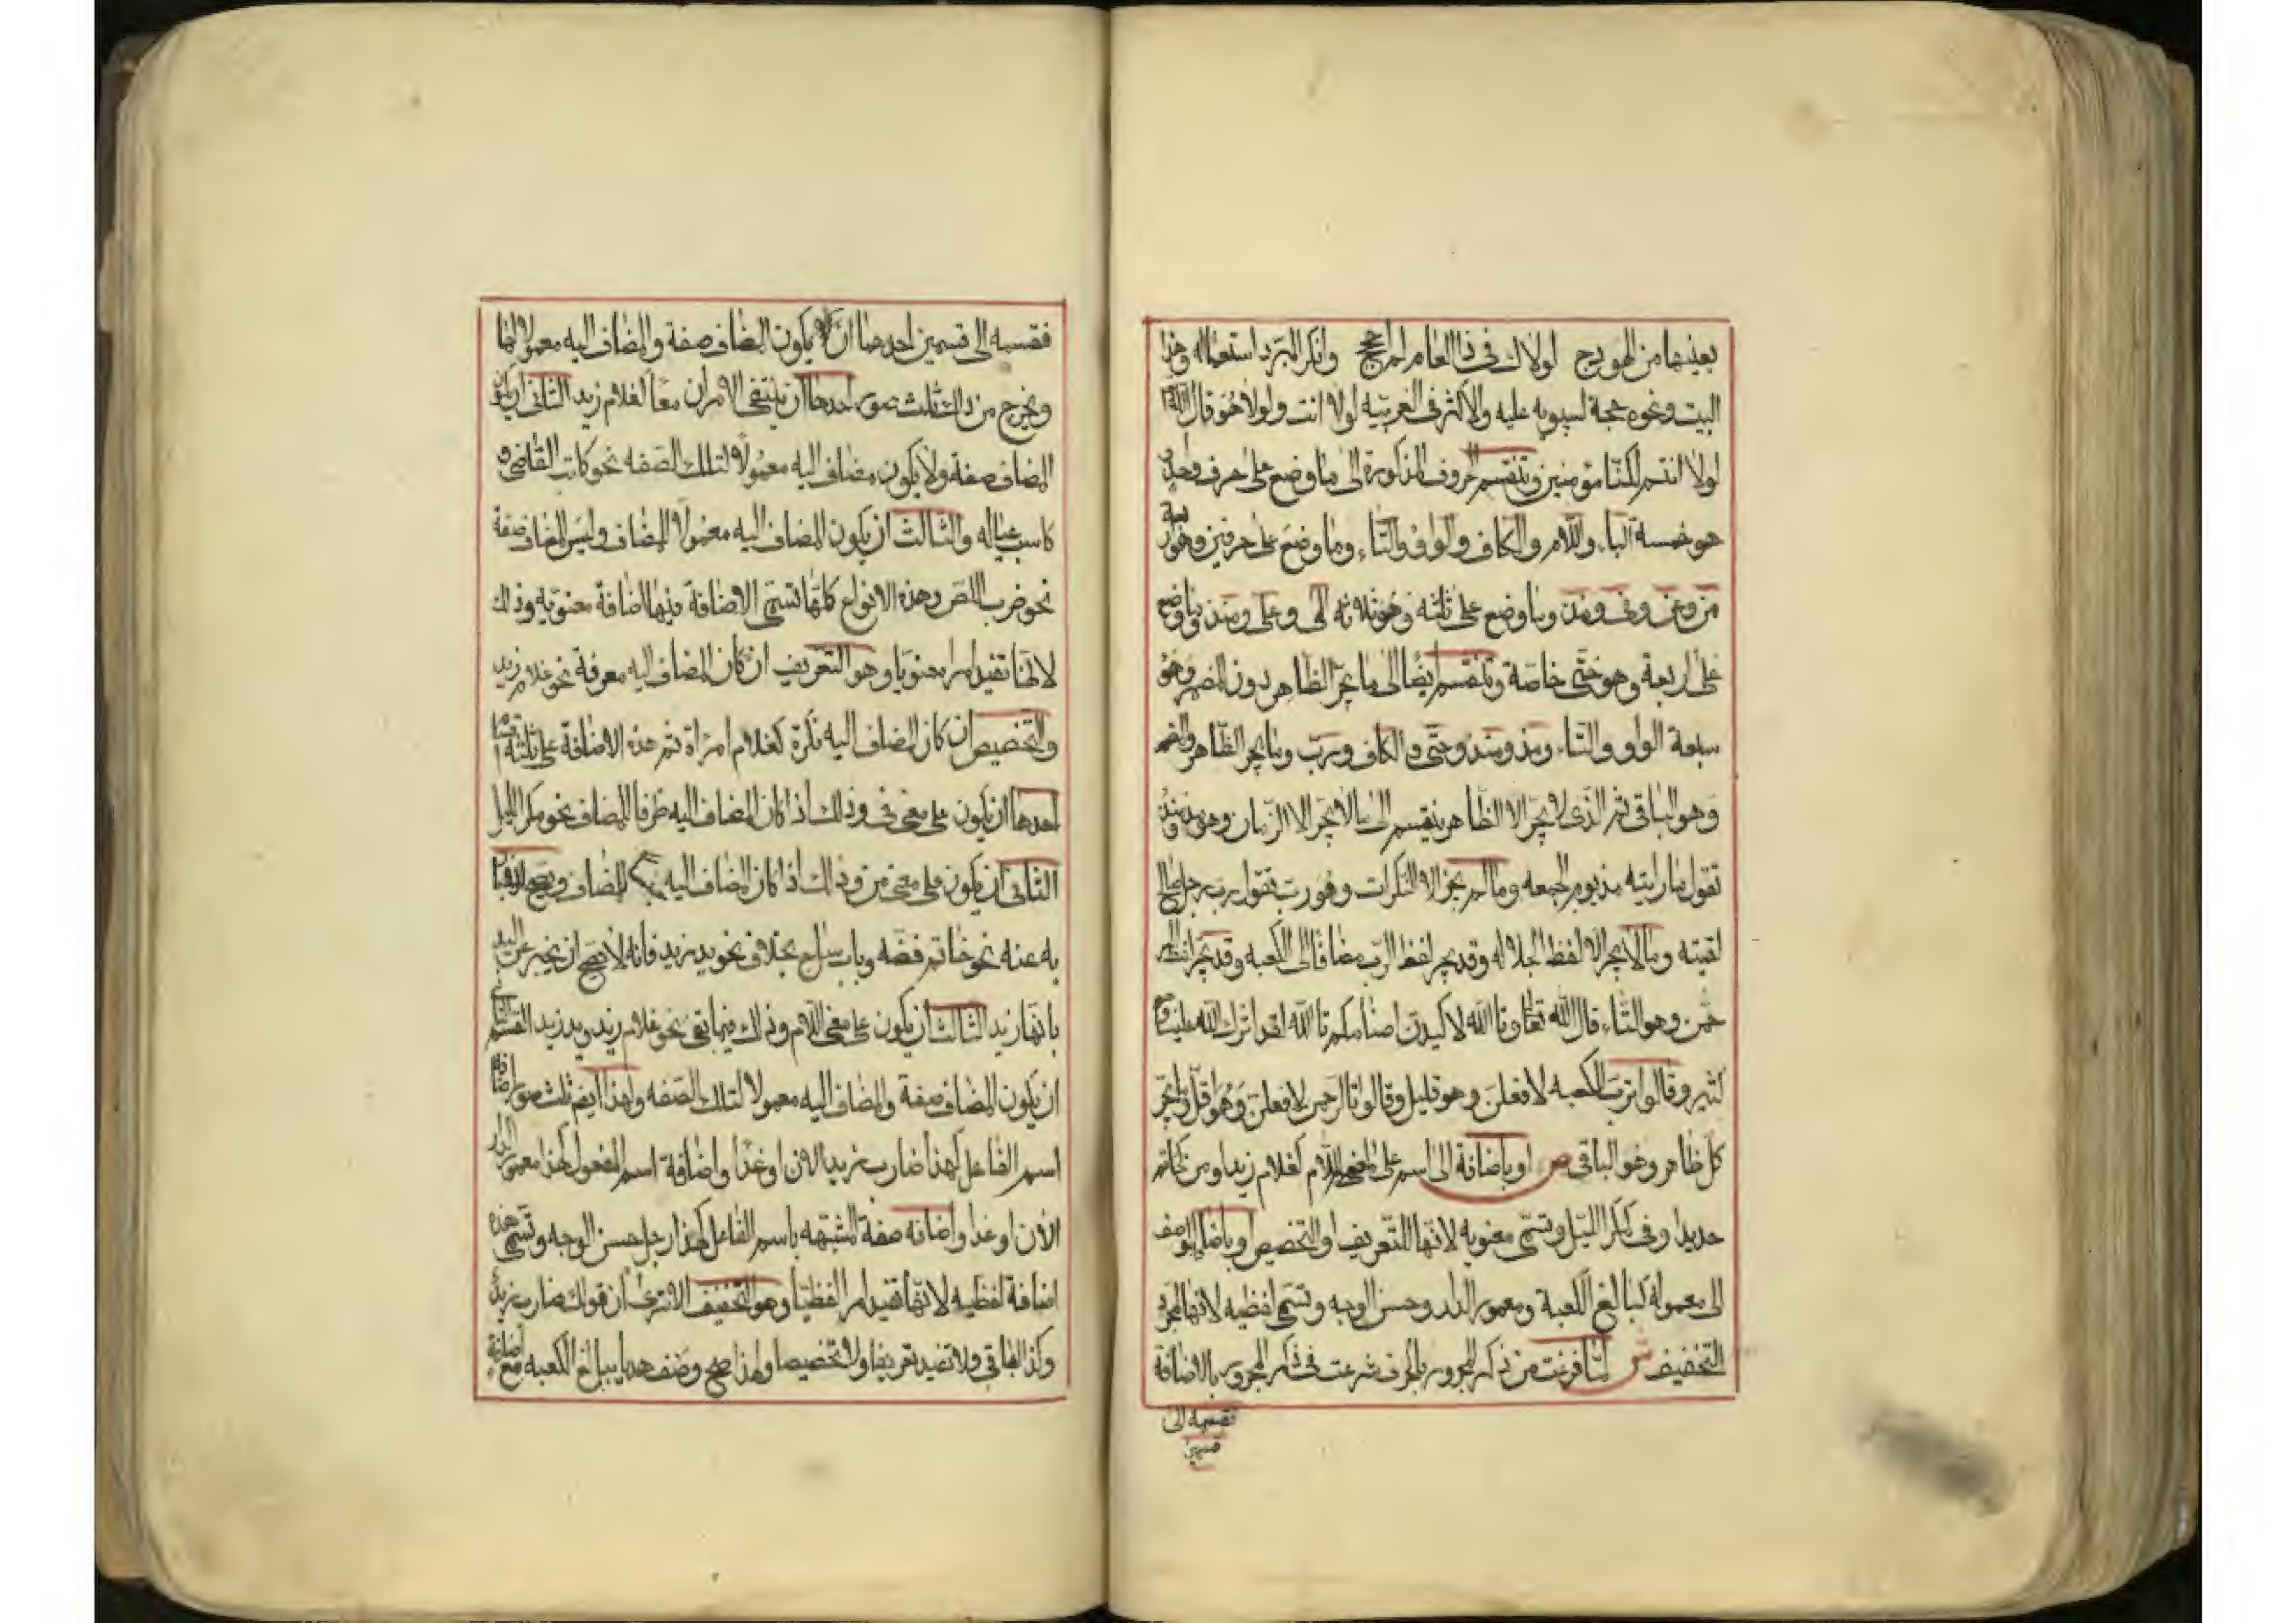 بعينيها من الهودج لولاك في ذا العام لم احجج وانكر المبرد استعماله وهذا
البيت ونحوه حجة لسيبويه عليه والاكثر في العربيه لولا انت ولولا هو قال الله تعا
لولا انتم لكنا مؤمنين وتنقسم الحروف المذكورة الى ما وضع على حرف واحد و
هو خمسة الباء واللام والكاف والواو والتاء وما وضع على حرفين وهو اربعة
من وعن وفى ومذ وما وضع على ثلثه وهو ثلاثه الى وعلى ومنذ وما وضع
على اربعة وهو حتى خاصة وتنقسم ايضا الى ما يجر الظاهر دون المضمر وهو
سبعة الواو والتاء ومذ ومنذ وحتى والكاف ورب وما يجر الظاهر والمضمر
وهو الباقى ثم الذى لا يجر الا الظاهر ينقسم الى ما لا يجر الا الزمان وهو مذ ومنذ
تقول ما رايته مذ يوم الجمعه وما لم يجر الا النكرات وهو رب تقول رب رجل صالح
لقيته وما لا يجر الا لفظ الجلاله وقد يجر لفظ الرب مضافا الى الكعبه وقد يجر لفظ الر
حمن وهو التاء قال الله تعا وتا الله لاكيدن اصنامكم تا الله لقد اثرك الله علينا و
كثير وقالوا ترب الكعبه لافعلن وهو قليل وقالوا تا الرحمن لافعلن وهو اقل وما يجر
كل ظاهر وهو الباقى ص او باضافة الى اسم على معنى اللام كغلام زيد او من كخاتم
حديد او فى كمكر الليل وتسمى معنويه لانها للتعريف او التخصيص او باضافة الوصف
الى معموله كبالغ الكعبة ومعمور الدار وحسن الوجه وتسمى لفظيه لانها لمجرد
التخفيف ش لما فرغت من ذكر المجرور بالحرف شرعت فى ذكر المجرور بالاضافة
فقسمه الى
قسمين
فقسمه الى قسمين احدهما ان لا يكون المضاف صفة والمضاف اليه معمولا لها
ويخرج من ذلك ثلث صور احدها ان ينتفى الامران معا كغلام زيد الثانى ان يكون
المضاف صفة ولا يكون مضاف اليه معمولا لتلك الصفه نحو كاتب القاضى و
كاسب عياله والثالث ان يكون المضاف اليه معمولا المضاف وليس المضاف صفة
نحو ضرب اللص وهذه الانواع كلها تسمى الاضافة فيها اضافة معنويه وذلك
لانها تفيد امرا معنويا وهو التعريف ان كان المضاف اليه معرفة نحو غلام زيد
والتخصيص ان كان المضاف اليه نكرة كغلام امراة ثم هذه الاضافة على ثلثة اقسام
احدها ان يكون على معنى فى وذلك اذا كان المضاف اليه ظرفا للمضاف نحو مكر الليل
الثانى ان يكون على معنى من وذلك اذا كان المضاف اليه للمضاف ويصح
به عنه نحو خاتم فضه وباب ساج بخلاف نحو يد زيد فانه لا يصح ان يخبر عن اليد
بانها زيد الثالث ان يكون على معنى اللام وذلك فيما بقى نحو غلام زيد ويد زيد القسم الثانى
ان يكون المضاف صفة والمضاف اليه معمولا لتلك الصفه ولهذا ايضا ثلث صور اضافة
اسم الفاعل كهذا ضارب زيد الان او غدا واضافة اسم المفعول كهذا معمور الدار
الان او غدا واضافه صفة المشبهه باسم الفاعل كهذا رجل حسن الوجه وتسمى هذه
اضافة لفظيه لانها تفيد امرا لفظيا وهو التخفيف الا ترى ان قولك ضارب زيد
وكذا الباقى ولا تفيد تعريفا ولا تخصيصا ولهذا صح وصف هديا ببالغ الكعبه مع اضافته